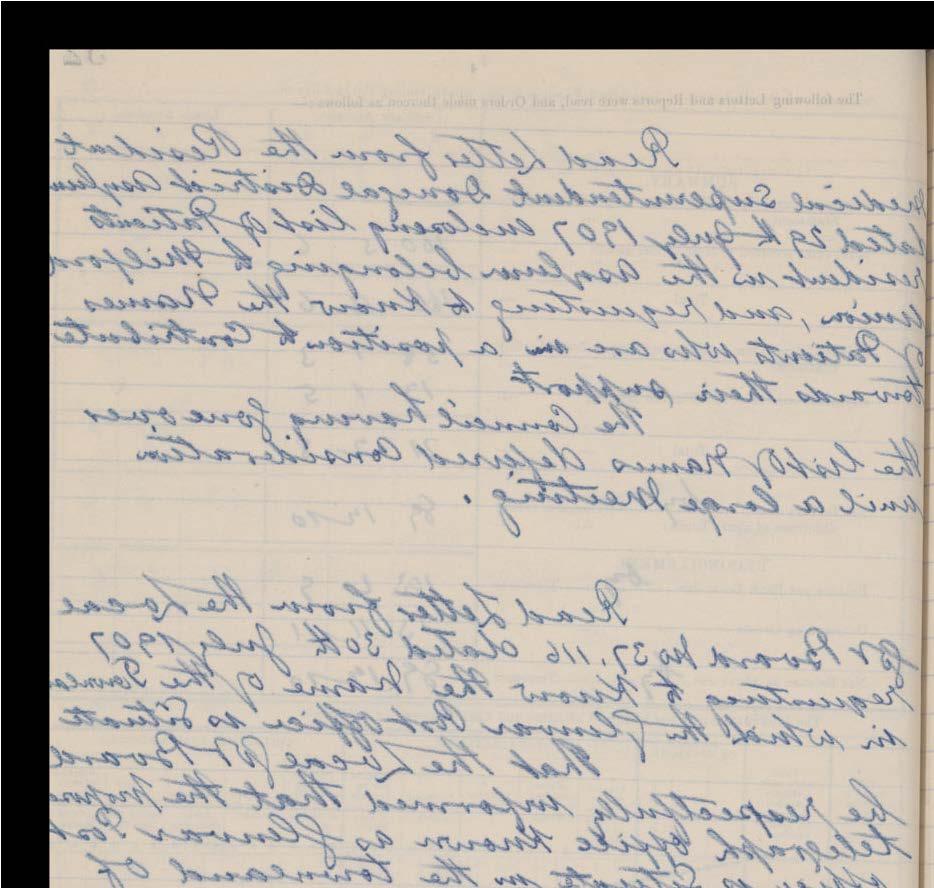 The following Letters and Reports were read, and Orders made thereon as follows:—
Read Letter from the Resident
Medical Superintendent Donegal District Asylum
dated 29th July 1907 enclosing list of Patients
resident in the Asylum belonging to Milford
Union, and requesting to know the names
of Patients who are in a position to contribute
towards their support
The Council having gone over
the list of names deferred consideration
until a large meeting.
Read Letter from the Local
Gt Board No 37.116 dated 30th July 1907
requesting to know the name of the
in which the Glenvar Post Office is situate
That the Local Gt Board
be respectfully informed that the
telegraph office known as Glenvar Post
is situate in the townland of